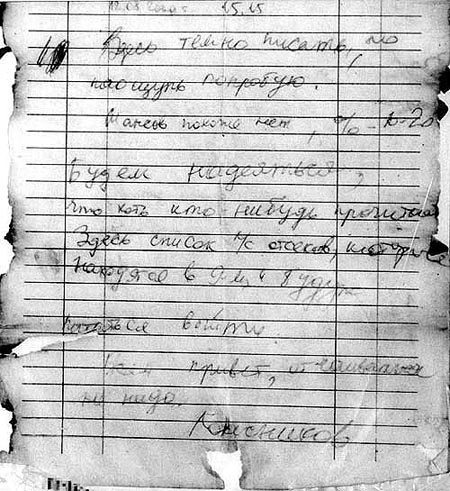 15.15
Здесь темно писать, но
наощупь попробую.
Шансов похоже нет, % - 10-20
Будем надеяться,
что хоть кто нибудь прочитает
Здесь список л/с отсеков, которые
находятся в 9-м и будут
пытаться выйти.
Всем привет, отчаиваться
не надо.
Колесников